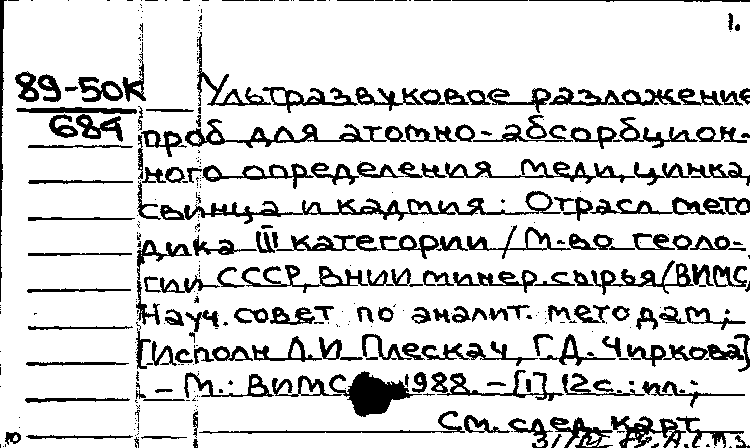 1.
89-50К
684
Ультразвуковое разложение
проб для атомно-абсорбцион-
ного определения меди, цинка,
свинца и кадмия: Отрасл. мето
дика III категории / М-во геоло-
гии СССР, ВНИИ минер. сырья (ВИМС,
Науч. совет по аналит. методам;
[Исполн Л.И Плескач, Г.Д. Чиркова]
. – М.: ВИМС 1988. – [1], 12 с. : ил.;
См. след. карт